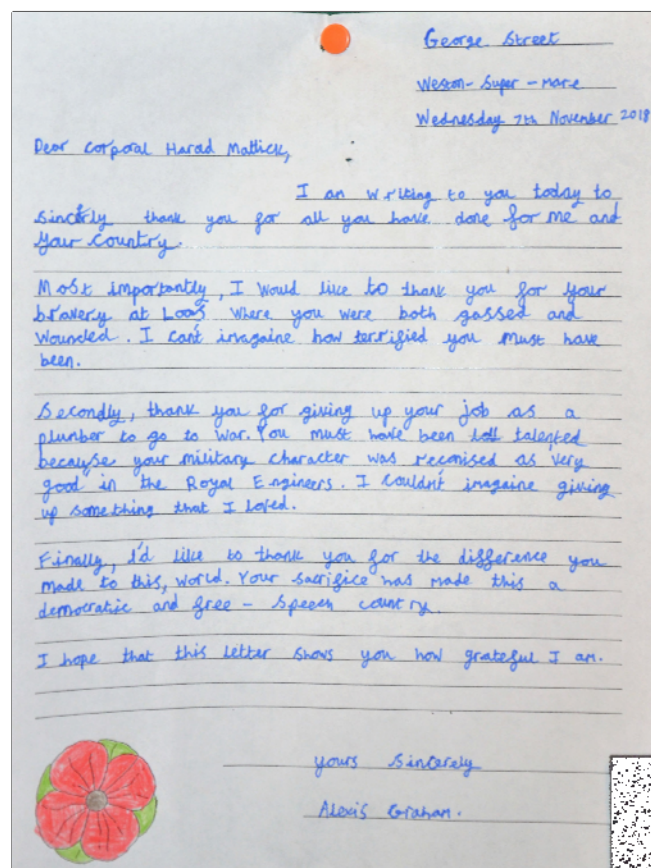 George Street
Weston-Super-Mare
Wednesday 7th November 2018
Dear Corporal Harad Mattick,
I am writing to you today to
sincerly thank you for all you have done for me and
your country.
Most importantly, I would like to thank you for your
bravery at Loos where you were both gassed and
wounded. I can't imagaine how terrified you must have
been.
Secondly, thank you for giving up your job as a
plumber to go to war. You must have been talented
because your military character was reconised as very
good in the Royal Engineers. I couldn't imagaine giving
up something that I loved.
Finally, I'd like to thank you for the difference you
made to this, world. Your sacrifice has made this a
democratic and free - speech country.
I hope that this letter shows you how grateful I am.
yours sincerely
Alexis Graham.